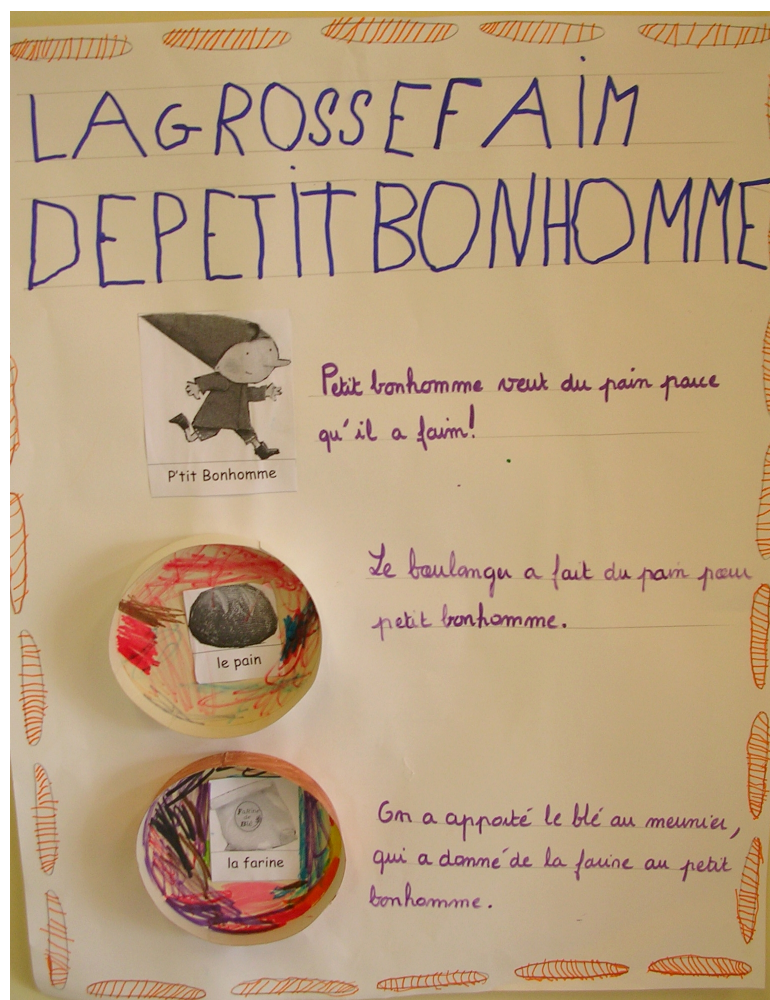 LA GROSSE FAIM
DE PETIT BONHOMME
P'tit Bonhomme
Petit bonhomme veut du pain parce
qu'il a faim!
le pain
Le boulanger a fait du pain pour
petit bonhomme.
Farine
de
Blé
la farine
On a apporté le blé au meunier,
qui a donné de la farine au petit
bonhomme.